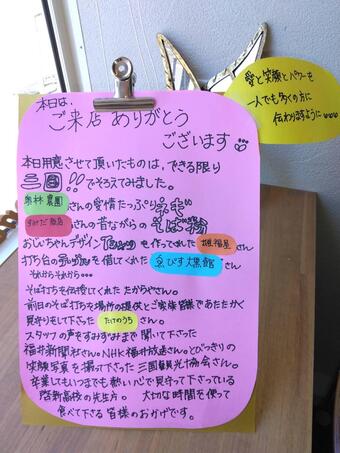 本日は、
ご来店ありがとう
ございます
愛と笑顔とパワーを
一人でも多くの方に
伝わりますように
本日用意させて頂いたものは、できる限り
三国!!でそろえてみました。
農園さんの愛情たっぷりネギ
すみだ商店さんの昔ながらのそば粉
おじいちゃんデザインTシャツを作ってくれました 福屋さん
打ち台の を借してくれた ゑびす大黒館さん
それから それから…
そば打ちを伝授してくれた たからやさん。
前日のそば打ちを場所の提供とご家族皆様であたたかく
見守りをして下さった たけのうちさん。
スタッフの声をすみずみまで聞いて下さった
福井新聞社さん。NHK福井放送さん。とびっきりの
笑顔写真を撮って下さった 三国観光協会さん。
卒業してもいつまでも熱い心で見守って下さっている
啓新高校の先生方。 大切な時間を使って
食べて下さる 皆様のおかげです。